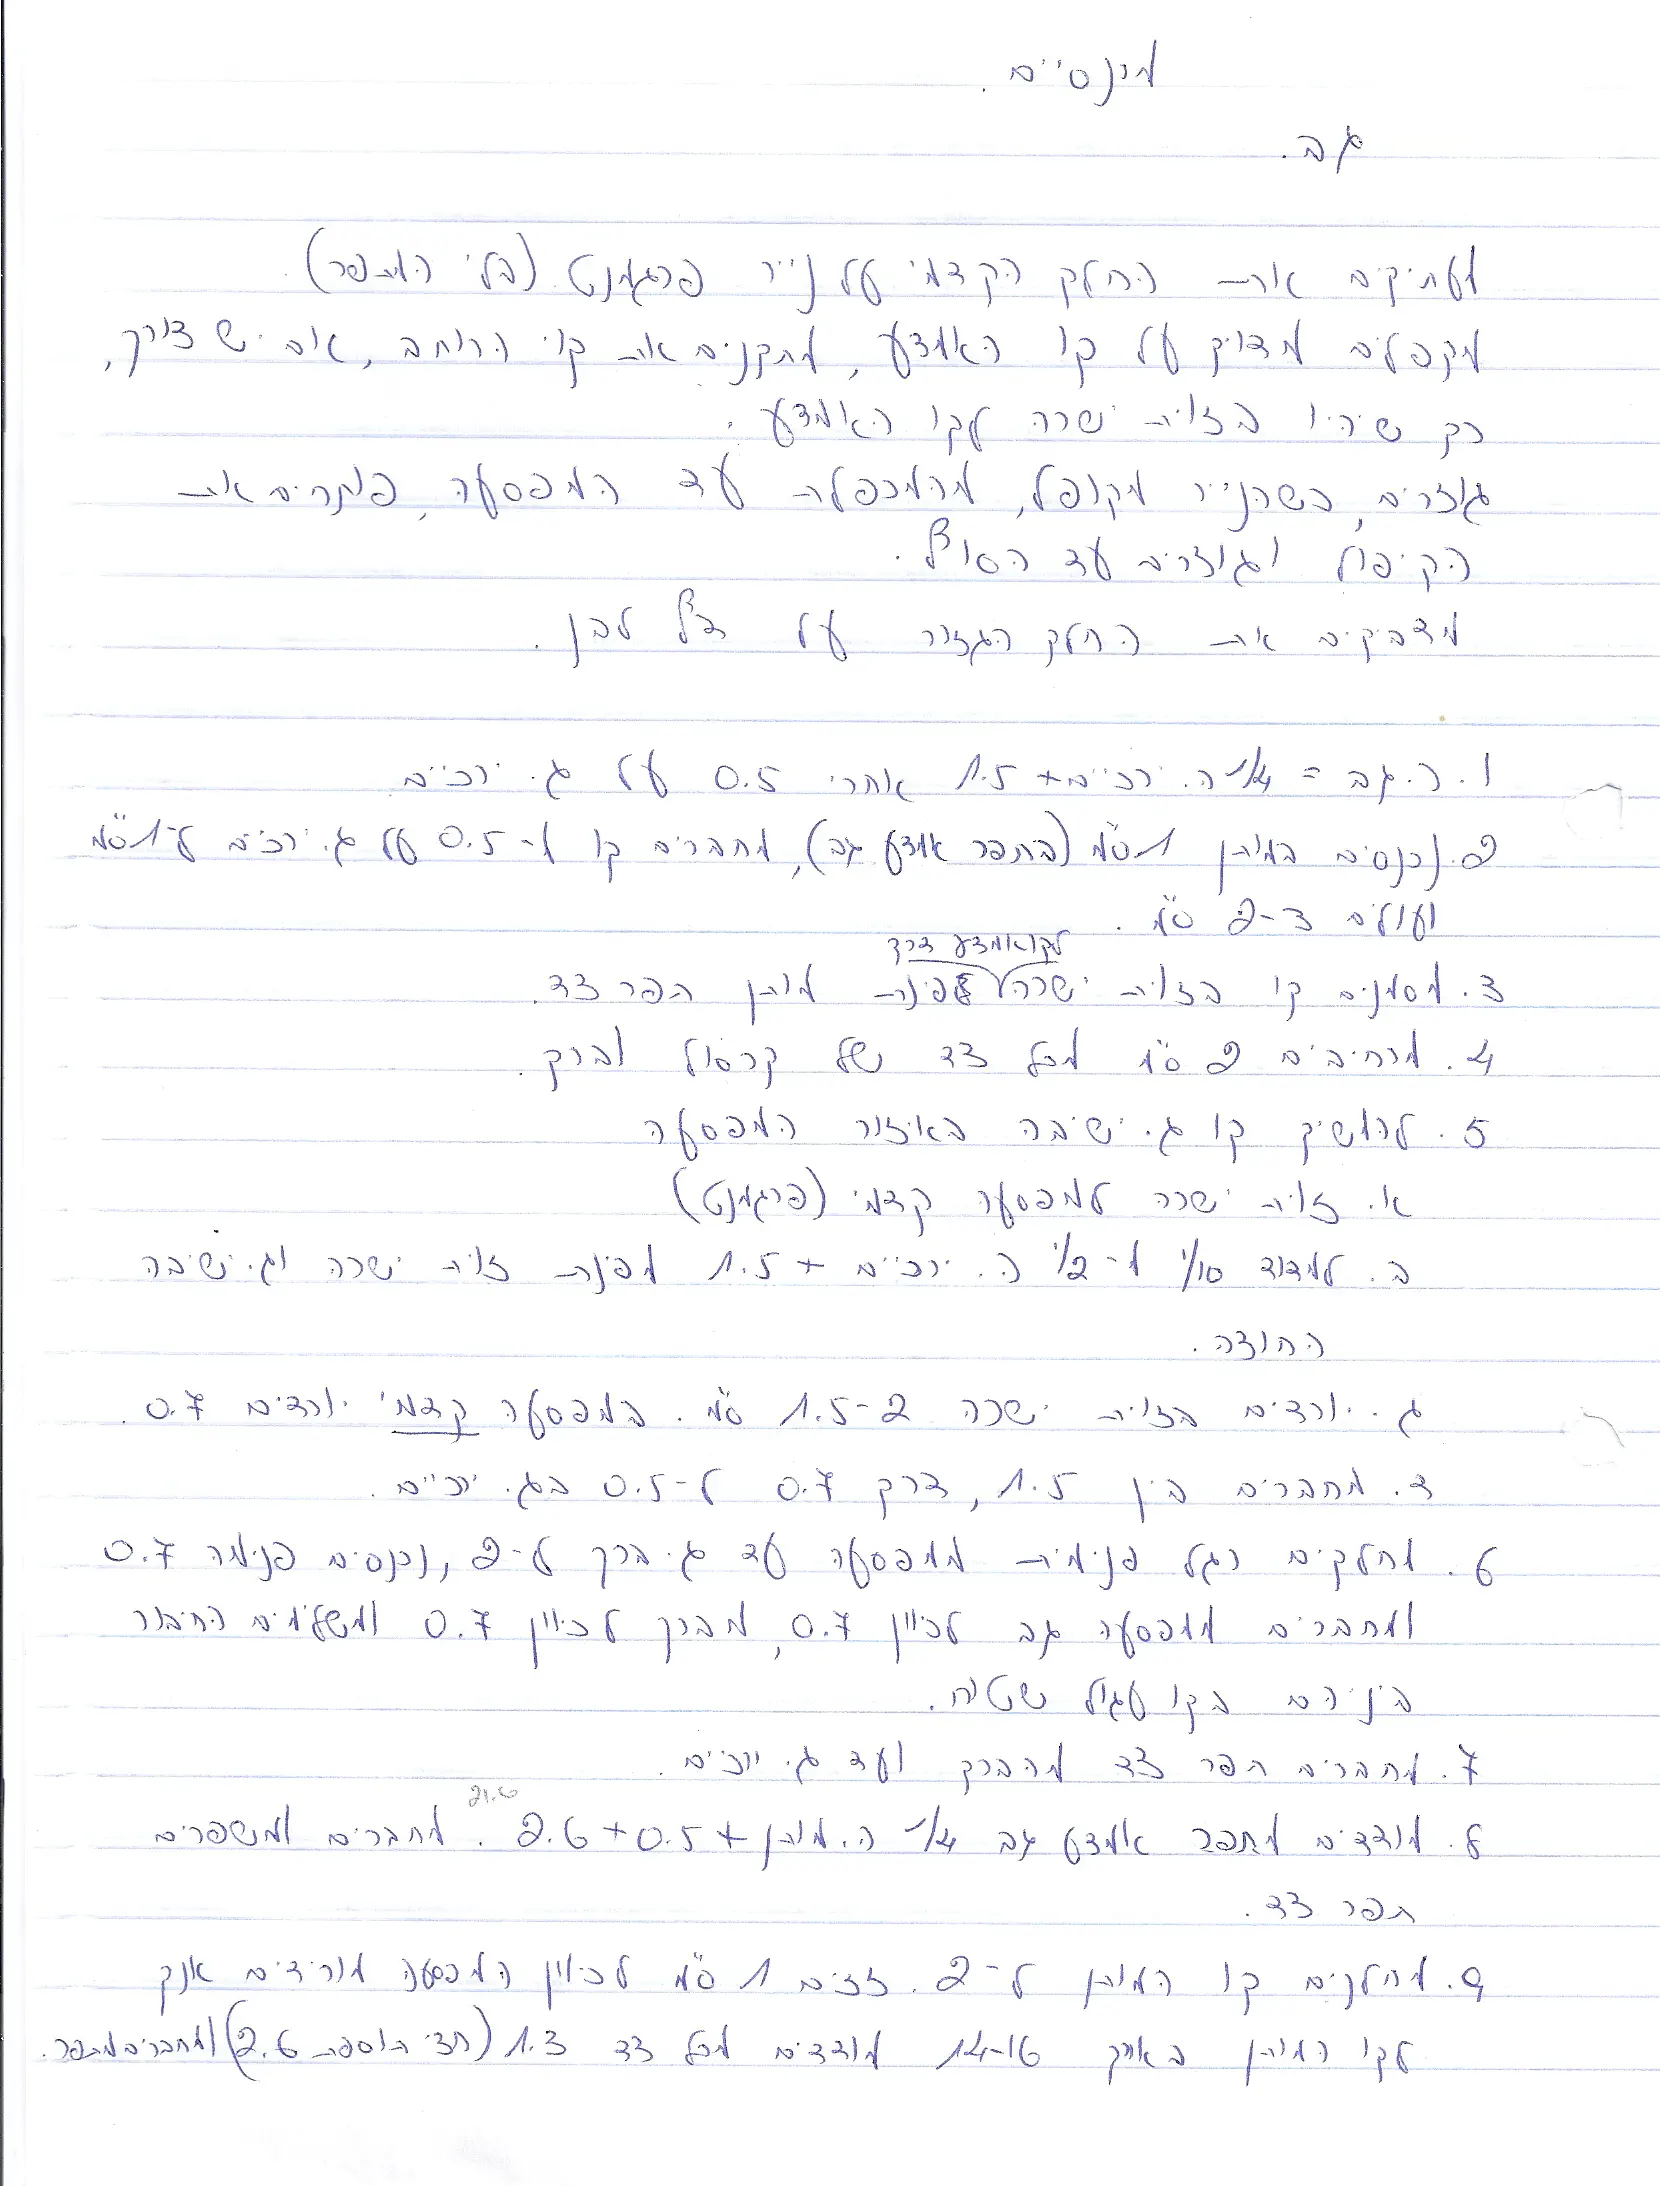 מכנסיים.
גב.
מעתיקים את החלק הקדמי על נייר פרגמנט (בלי התפר).
מקפלים מדויק על קו האמצע, מתקנים את קוי הרוחב, אם יש צורך,
רק שיהיו בזוית ישרה לקו האמצע.
גוזרים, כשהנייר מקופל, מהמכפלת עד המפסעה, פותרים את
הקיפול וגוזרים עד הסוף.
מדביקים את החלק הגזור על דף לבן.
1. ר. גב = 1/4 ה. ירכיים + 1.5 אחרי 0.5 על ג. ירכיים
2. נכנסים במותן 1 ס"מ (בתפר אמצע גב), מחברים קו מ-0.5 על ג. ירכיים ל-1 ס"מ
ועולים 2-3 ס"מ.
לקו אמצע דרך
3. מסמנים קו בזוית ישרה פינת מותן תפר צד.
4. מרחיבים 2 ס"מ מכל צד של קרסול וברך.
5. להמשיך קו ג. ישיבה באיזור המפסעה
א. זוית ישרה למפסעה קדמי (פרגמנט)
ב. למדוד 1/10 מ-1/2 ה. ירכיים + 1.5 מפינת זוית ישרה וג. ישיבה
החוצה.
ג. יורדים בזוית ישרה 1.5-2 ס"מ. במפסעה קדמי יורדים 0.7.
ד. מחברים בין 1.5, דרך 0.7 ל-0.5 בג. ירכיים.
6. מחלקים רגל פנימית ממפסעה עד ג. ברך ל-2, נכנסים פנימה 0.7
ומחברים ממפסעה גב לכיוון 0.7, מברך לכיוון 0.7 ומשלימים החיבור
ביניהם בקו עגול שטוח.
7. מחברים תפר צד מהברך ועד ג. ירכיים.
21.6
8. מודדים מתפר אמצע גב 1/4 ה. מותן + 0.5 + 2.6. מחברים ומשפרים
תפר צד.
9. מחלקים קו המותן ל-2. זזים 1 ס"מ לכיוון המפסעה מורידים אנך
לקו המותן באורך 14-16 מודדים מכל צד 1.3 (חצי תוספת 2.6) ומחברים מתפר.